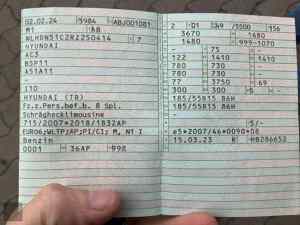 02.02.24 5984 ABJ001081
M1 AB
NLHDN51C2RZ250414 - 7
HYUNDAI
AC3
B5P11
A51A11
-
I10
HYUNDAI (TR)
Fz.z.Pers.bef.b. 8 Spl.
Schräghecklimousine
715/2007*2018/1832AP
EURO6;WLTP;AP;PI/CI; M, N1 I
Benzin
0001 36AP 998
2 01 49 /4000 156
3670 - 1480
1480 - 999-1070
- 75 -
122 1410 1410
780 730 -
780 730 -
77 3750 69
300 300 5 -
185/55R15 86H
185/55R15 86H
-
- 5/-
e5*2007/46*0090*08
15.03.23 K